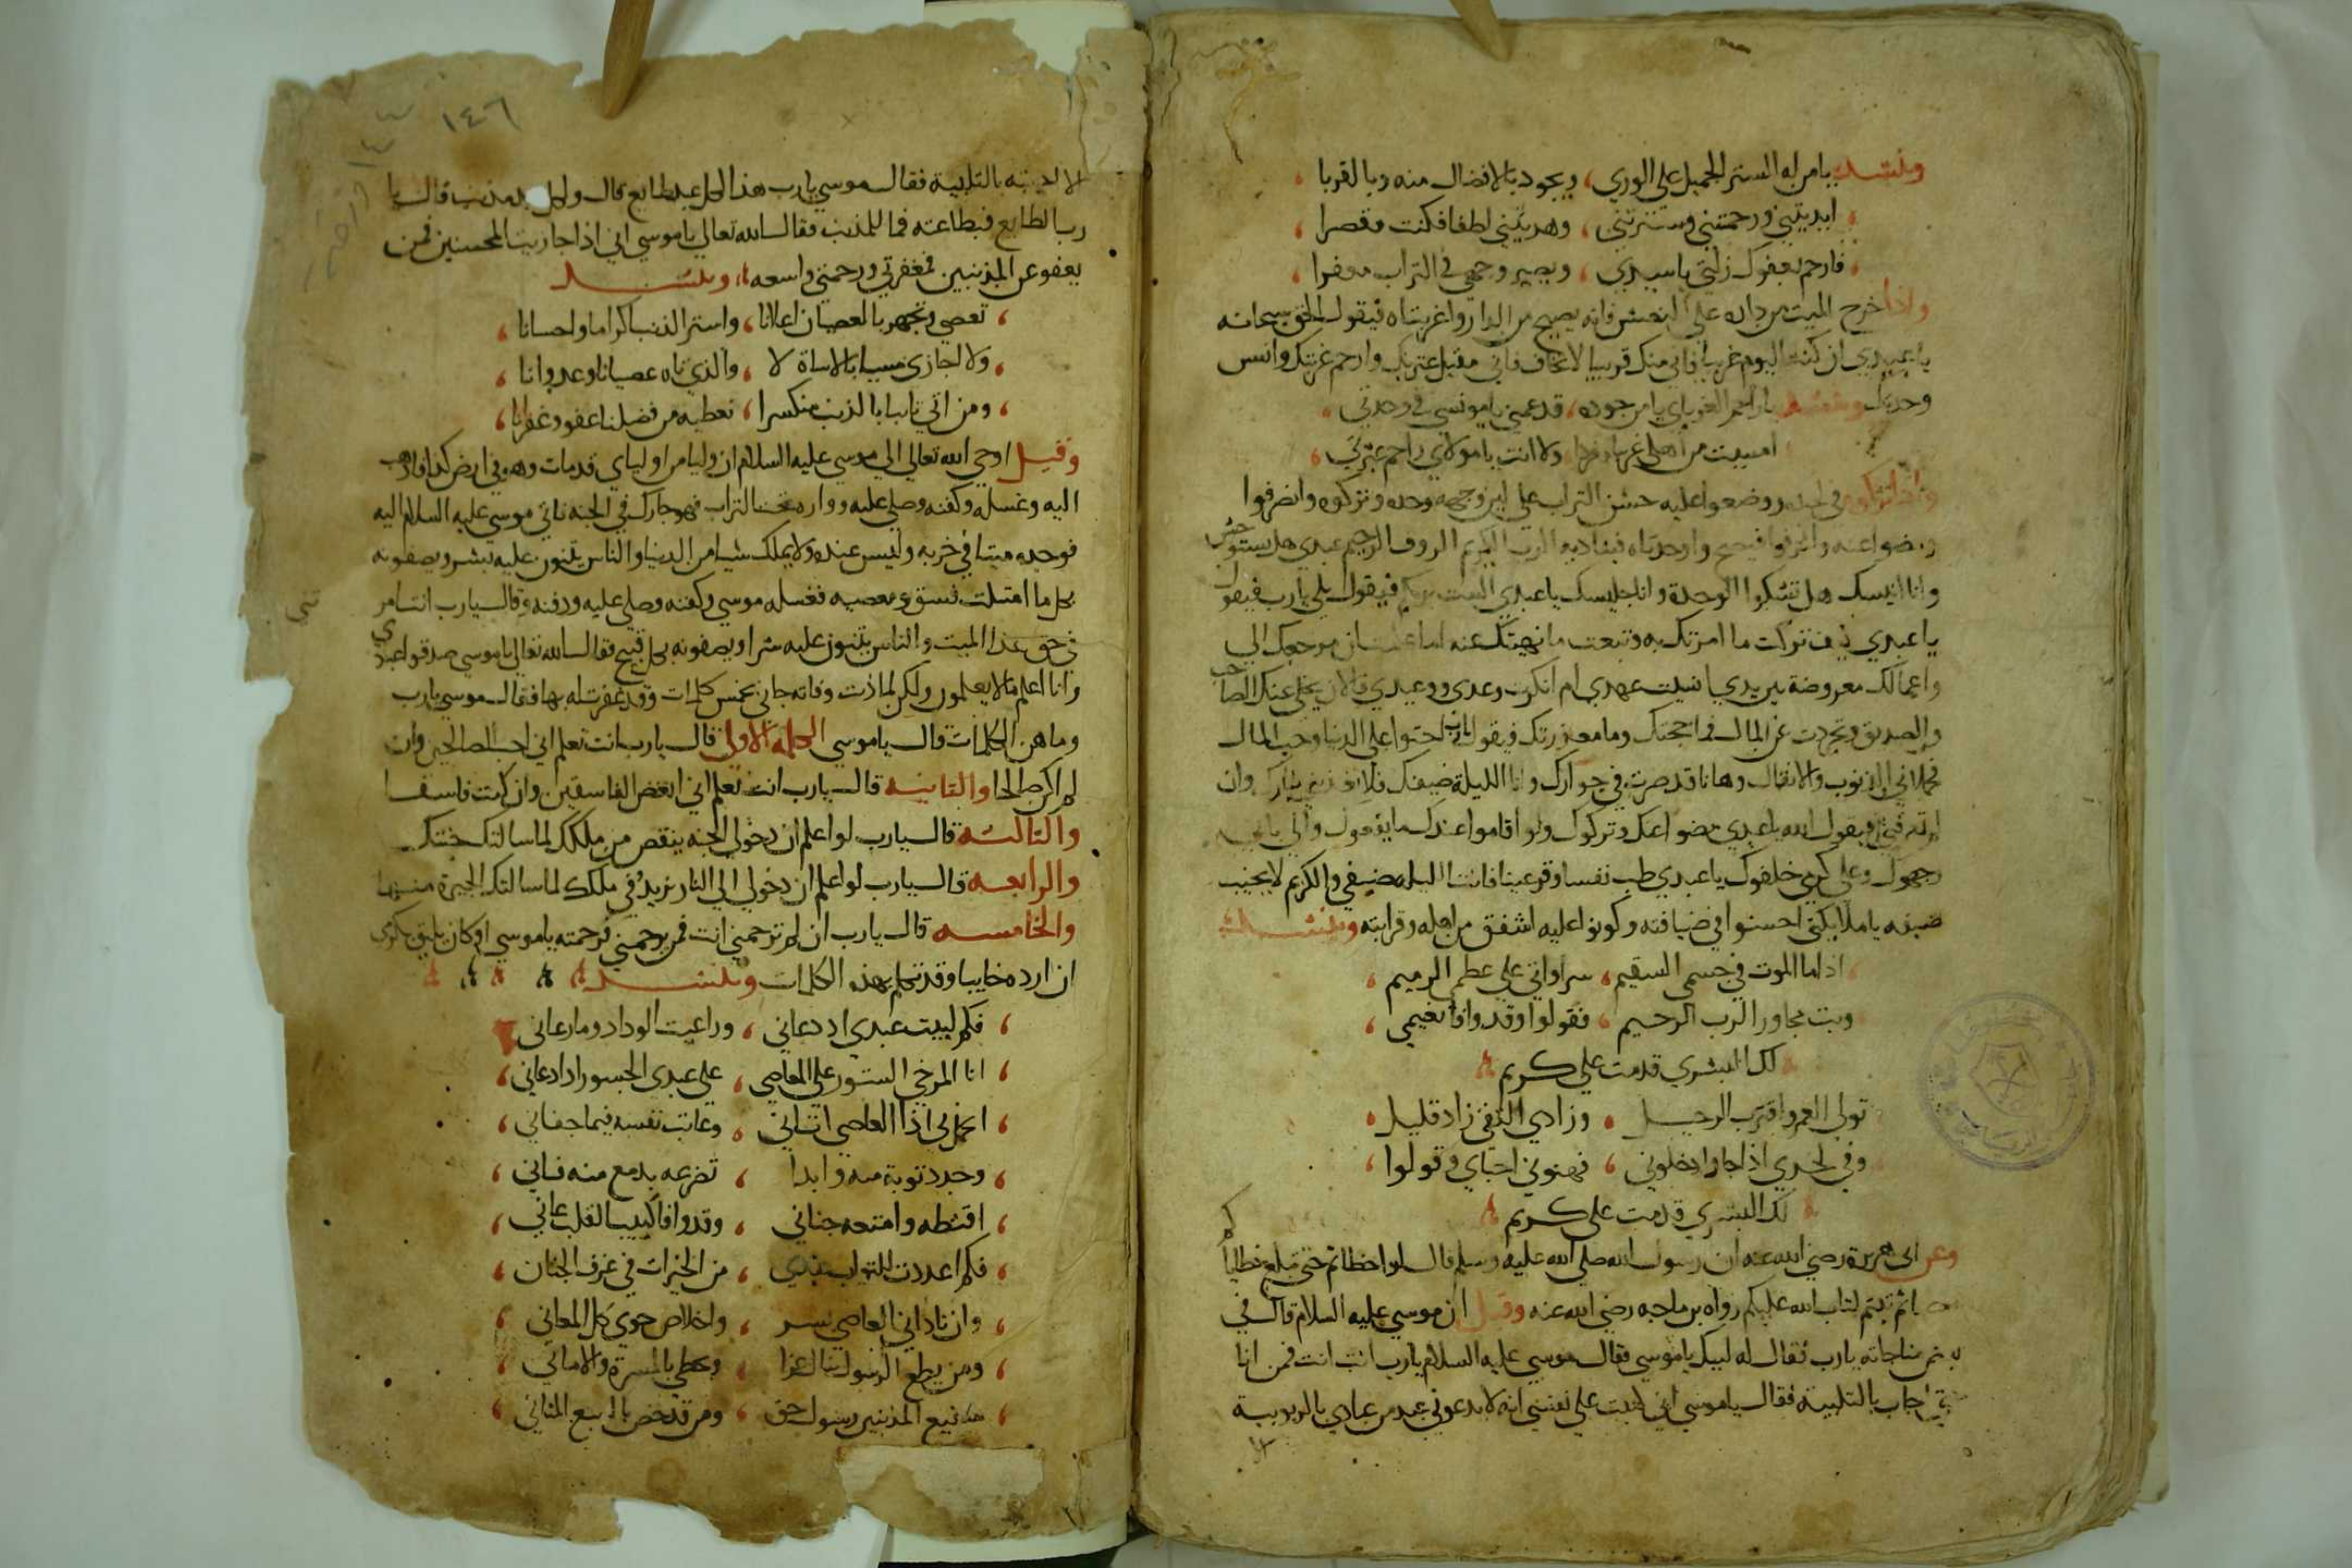 وينشد يا من له الستر الجميل علي الوري، ويجود بالافضال منه وبالقرا
ابديتني ورحمتني وسترتني، وهديتني لطفا فكنت مقصرا
فارحم بعفوك زلتي يا سيدي، ويصير وجهي في التراب معفرا
واذا خرج الميت من داره علي النعش فانه يصيح من الدار واغربتاه فيقول الحق سبحانه
يا عبدي ان كنت اليوم غريبا فاني منك قريبا لا تخاف فاني مقيل عثرتك وارحم غربتك وانس
وحدتك وينشد يا راحم الغرباي يا من جوده، قد عمني يا مونسي في وحدتي
امسيت من اهلي غريبا مفردا ولا انت يا مولاي راحم عبرتي
في لحده ووضعوا عليه خشن التراب علي لين وجهه وحده وتركوه وانصرفوا
واعنه وانصرفوا فيصيح واوحدتاه فيناديه الرب الكريم الروف الرحيم عبدي هل تستوحش
وانا انيسك هل تشكوا الوحدة وانا جليسك يا عبدي الست بربكم فيقول بلي يارب فيقول
يا عبدي كيف تركت ما امرتك به وتبعت ما نهيتك عنه اما علمت ان مرجعك الي
واعمالك معروضة بين يدي انسيت عهدي ام انكرت وعدي ووعيدي فالان تخلي عنك الصاحب
والصديق وتجردت عن المال فما حجتك وما معذرتك فيقول يارب احتوا علي الدنيا وحب المال
فحملاني الذنوب والاثقال وها انا قد صرت في جوارك وانا الليلة ضيفك فلا تعذبني بنارك وان
فيقول الله يا عبدي مضوا عنك وتركوك ولو اقاموا عندك ما ينفعوك والي بابي
وجهوك وعلي كرمي خلفوك يا عبدي طب نفسا وقر عينا فانت الليلة ضيفي والكريم لا يخيب
ضيفه يا ملايكتي احسنوا في ضيافته وكونوا عليه اشفق من اهله وقرابته وينشد
اذا ما الموت في جسمي السقيم، سرا واتي علي عظمي الرميم
وبت مجاور الرب الرحيم، فقولوا وقد وافا نعيمي
لك البشري قدمت علي كريم
تولي العمر واقترب الرحيل، وزادي التقي زاد قليل
وفي لحدي اذا جاوا دخلوني، فهنوني احباي وقولوا
لك البشري قدمت علي كريم
وعن ابي هريرة رضي الله عنه ان رسول الله صلي الله عليه وسلم قال لو اخطاتم حتي تبلغ خطاياكم
ثم تبتم لتاب الله عليكم رواه بن ماجه رضي الله عنه وقيل ان موسي عليه السلام قال في
مناجاته يارب فقال له لبيك يا موسي فقال موسي عليه السلام يارب انت انت فمن انا
حتي اجاب بالتلبية فقال يا موسي اني كتبت علي نفسي انه لا يدعوني عبد من عبادي بالربوبية
١٤٦
الا اجيبه بالتلبية فقال موسي يارب هذا لكل عبد طايع قال ولكل عبد مذنب قال يا
رب الطايع فبطاعته فما للمذنب فقال الله تعالي يا موسي اني اذا جازيت المحسنين فمن
يعفو عن المذنبين فمغفرتي ورحمتي واسعه، وينشد
تعصي وتجهر بالعصيان اعلانا، واستر الذنب اكراما واحسانا
ولا اجازي مسيا بالاساة لا، والذي تاه عصيانا وعدوانا
ومن اتي تايبا بالذنب منكسرا، نعطيه من فضلنا عفو وغفرانا
وقيل اوحي الله تعالي الي موسي عليه السلام ان وليا من اولياي قد مات وهو في ارض كذا فاذهب
اليه وغسله وكفنه وصلي عليه وواره تحت التراب فهو جارك في الجنه فاتي موسي عليه السلام اليه
فوجده ميتا في خربه وليس عنده ولا يملك شيا من الدنيا والناس يثنون عليه بشر ويصفونه
بكل ما امتلت فسق ومعصيه فغسله موسي وكفنه وصلي عليه ودفنه وقال يارب انت امر
تني
في حق هذا الميت والناس يثنون عليه شرا ويصفونه بكل قبيح فقال الله تعالي يا موسي صدقوا عبادي
وانا اعلم ما لا يعلمون ولكن لما دنت وفاته جاني بخمس كلمات وقد غفرت له بها فقال موسي يارب
وما هن الكلمات قال يا موسي الكلمة الاولي قال يارب انت تعلم اني احب الصالحين وان
لم اكن صالحا والثانيه قال يارب انت تعلم اني ابغض الفاسقين وان كنت فاسقا
والثالثة قال يارب لو اعلم ان دخولي الجنه ينقص من ملكك لما سالتك جنتك
والرابعه قال يارب لو اعلم ان دخولي الي النار يزيد في ملكك لما سالتك الجيرة منها
والخامسه قال يارب ان لم ترحمني انت فمن يرحمني فرحمته يا موسي اوكان يليق بكرمي
ان ارده خايبا وقد تكلم بهذه الكلمات وينشد
فكم لبيت عبدي اذ دعاني، وراعيت الوداد وما رعاني
انا المرخي الستور علي المعاصي، علي عبدي الجسور اذا دعاني
اذا العاصي اتاني، وعاتب نفسه فيما جفاني
وجدد توبة منه وابدا، تضرعه بدمع منه فاني
اقنطه وامنعه جناني، وقد وافا كييب القلب عاني
فكم اعددت للتواب عندي، من الخيرات في غرف الجنان
وان ناداني العاصي بسر، واخلاص حوي كل المعاني
ومن يطع الرسول ينال عزا، ويحظي بالمسرة والاماني
شفيع المذنبين رسول حق، ومن قد خص بالسبع المثاني